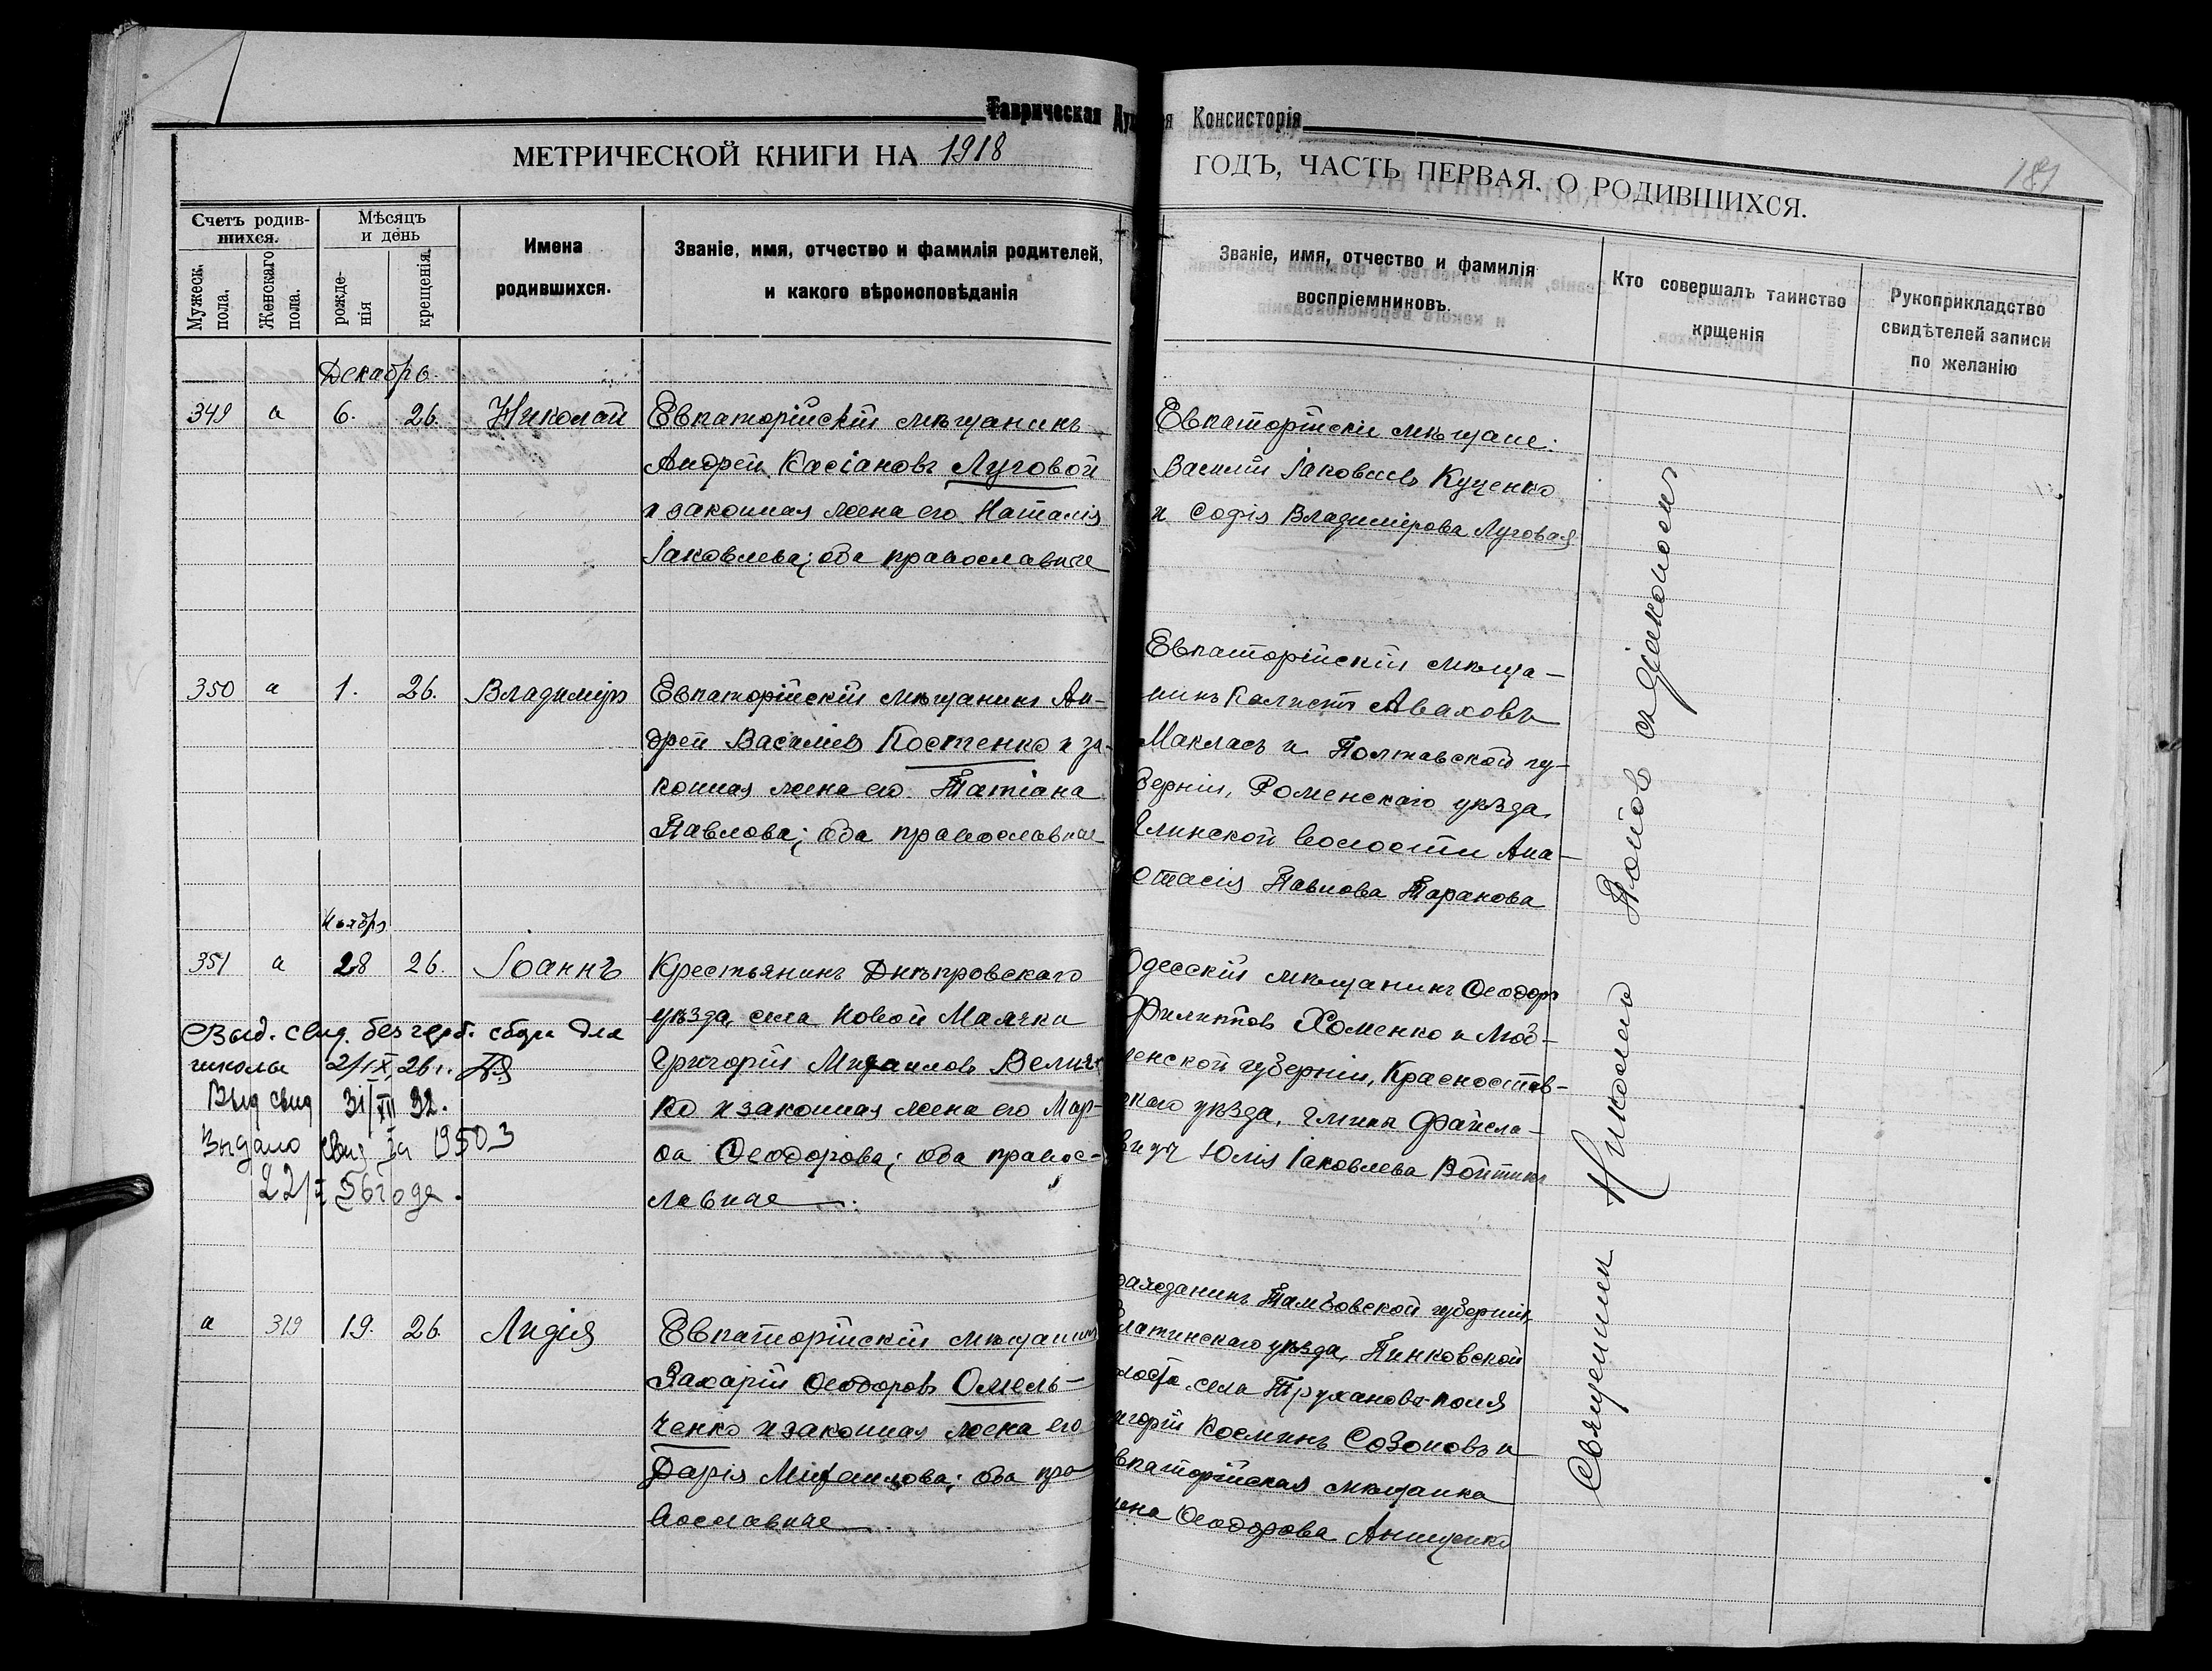 Таврическая Дух я Консисторія
МЕТРИЧЕСКОЙ КНИГИ НА 1918
ГОДЪ, ЧАСТЬ ПЕРВАЯ, О РОДИВШИХСЯ.
181
Счетъ родив-
шихся.
Мужеск. пола.
Женскаго пола.
Мѣсяцъ
и день
рожде-
нія
крещенія.
Имена
родившихся.
Званіе, имя, отчество и фамилія родителей,
и какого вѣроисповѣданія
Званіе, имя, отчество и фамилія
воспріемниковъ.
Кто совершалъ таинство
крщенія
Рукоприкладство
свидѣтелей записи
по желанію
Декабрь.
349 а 6. 26. Николай
Евпаторійскій мѣщанинъ
Андрей Касіановъ Луговой
и законная жена его Наталія
Іаковлева; оба православные
Евпаторійскіе мѣщане:
Василій Іаковлевъ Куценко
и Софія Владимірова Луговая.
350 а 1. 26. Владиміръ
Евпаторійскій мѣщанинъ Ан-
дрей Василіевъ Костенко и за-
конная жена его Татіана
Павлова; оба православные
Евпаторійскій мѣща-
нинъ Калистъ Аваховъ
Макласъ и Полтавской гу-
берніи, Роменскаго уѣзда,
Глинской волости Ана-
стасія Павлова Таранова
Ноябрь
351 а 28 26. Іоаннъ
Крестьянинъ Днѣпровскаго
уѣзда, села Новой Маячки
Григорій Михаиловъ Велич-
ко и законная жена его Мар-
ѳа Ѳеодорова; оба правос-
лавные
Одесскій мѣщанинъ Ѳеодоръ
Филипповъ Хоменко и Люб-
ленской губерніи, Красностав-
скаго уѣзда, гмины Файсла-
вичъ Юлія Іаковлева Войтикъ
Выд. свид. без герб. сбора для
школы 21/IX 26 г.
Выд свид 31/XII 32.
Выдано свид за 1950-3
22/I 56 года.
а 319 19. 26. Лидія
Евпаторійскій мѣщанинъ
Захарій Ѳеодоровъ Омель-
ченко и законная жена его
Дарія Михаилова; оба пра
вославные
ражданинъ Тамбовской губерніи,
латинскаго уѣзда, Пинковской
лости села Труханова-поля
игорій Косминъ Созоновъ и
впаторійская мѣщанка
ена Ѳеодорова Анищенко
Священникъ Николай Попов съ діакономъ